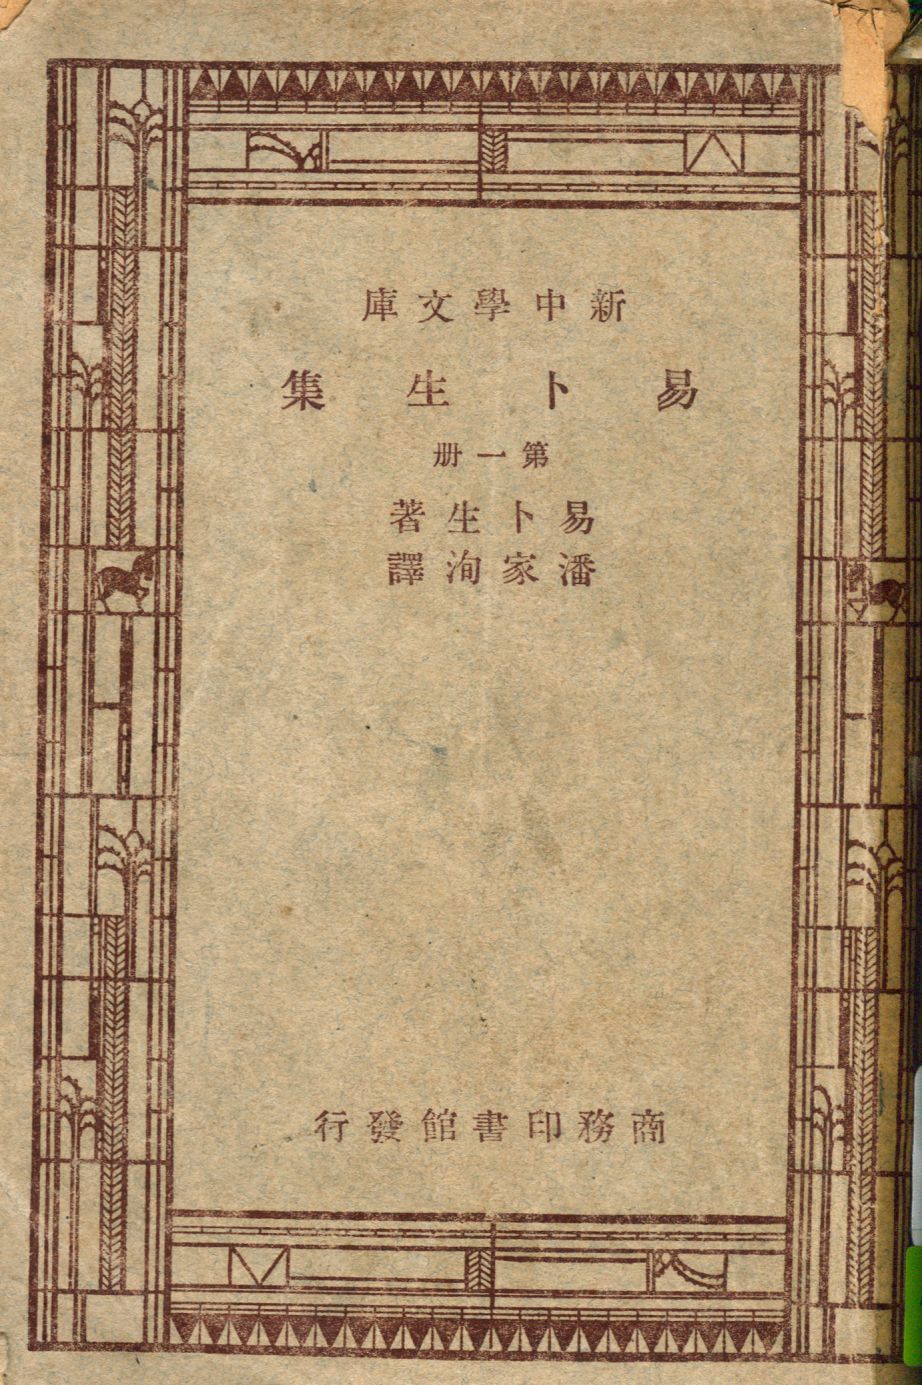 新中學文庫
易卜生集
第一册
易卜生著
潘家洵譯
商務印書館發行